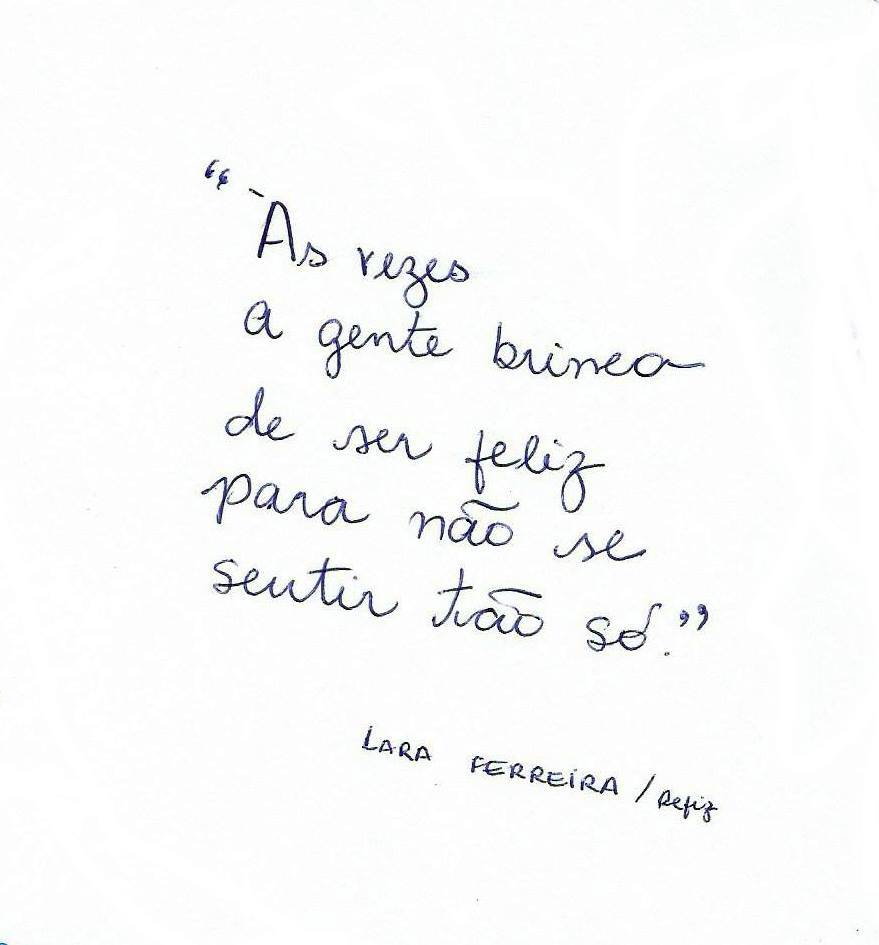 “Às vezes
a gente brinca
de ser feliz
para não se
sentir tão só.”
LARA FERREIRA / Refiz